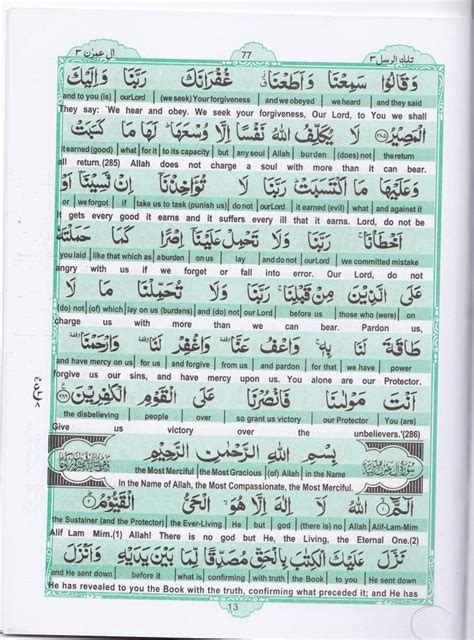 تلك الرسل ٣ 77 ال عمرن ٣
وَقَالُوْا سَمِعْنَا وَاَطَعْنَا غُفْرَانَكَ رَبَّنَا وَاِلَيْكَ
and to you (is) | ourLord | (we seek) Your forgiveness | and we obeyed | we heard | and they said
They say: 'We hear and obey. We seek your forgiveness, Our Lord, to You we shall
الْمَصِيْرُ ﴿۲۸۵﴾ لَا يُكَلِّفُ اللهُ نَفْسًا اِلَّا وُسْعَهَا لَهَا مَا كَسَبَتْ
it earned (good) | what | for it | to its capacity | but | any soul | Allah | burden | (does) not | the return
all return.(285) Allah does not charge a soul with more than it can bear.
وَعَلَيْهَا مَا اكْتَسَبَتْ رَبَّنَا لَا تُؤَاخِذْنَا اِنْ نَّسِيْنَا اَوْ
or | we forgot | if | take us to task (punish us) | do not | our Lord | it earned (evil) | what | and against it
It gets every good it earns and it suffers every ill that it earns. Lord, do not be
اَخْطَاْنَا رَبَّنَا وَلَا تَحْمِلْ عَلَيْنَا اِصْرًا كَمَا حَمَلْتَهٗ
you laid | like that which as | a burden | on us | lay | and do not | our Lord | we committed mistake
angry with us if we forget or fall into error. Our Lord, do not
عَلَى الَّذِيْنَ مِنْ قَبْلِنَا رَبَّنَا وَلَا تُحَمِّلْنَا مَا لَا
(do) not | (of) which | lay on us (burdens) | and (do) not | our Lord | before us | those who (were) | on
charge us with more than we can bear. Pardon us,
طَاقَةَ لَنَا بِهٖ وَاعْفُ عَنَّا وَاغْفِرْ لَنَا وَارْحَمْنَا
and have mercy on us | for us | and forgive | us | and pardon | for that | we have | power
forgive us our sins, and have mercy upon us. You alone are our Protector.
اَنْتَ مَوْلٰىنَا فَانْصُرْنَا عَلَى الْقَوْمِ الْكٰفِرِيْنَ ﴿۲۸۶﴾
the disbelieving | people | over | so grant us victory | our Protector | You (are)
Give us victory over the unbelievers.'(286)
بِسْمِ اللهِ الرَّحْمٰنِ الرَّحِيْمِ
the Most Merciful | the Most Gracious | (of) Allah | in the Name
in the Name of Allah, the Most Compassionate, the Most Merciful.
الٓمّٓ ﴿۱﴾ اللهُ لَا اِلٰهَ اِلَّا هُوَ الْحَىُّ الْقَيُّوْمُ ﴿۲﴾
the Sustainer (and the Protector) | the Ever-Living | He | but | god | (there is) no | Allah | Alif-Lam-Mim
Alif Lam Mim.(1) Allah! There is no god but He, the Living, the Eternal One.(2)
نَزَّلَ عَلَيْكَ الْكِتٰبَ بِالْحَقِّ مُصَدِّقًا لِّمَا بَيْنَ يَدَيْهِ وَاَنْزَلَ
and He sent down | before it | what is | confirming | with truth | the Book | to you | He sent down
He has revealed to you the Book with the truth, confirming what preceded it; and He has
13